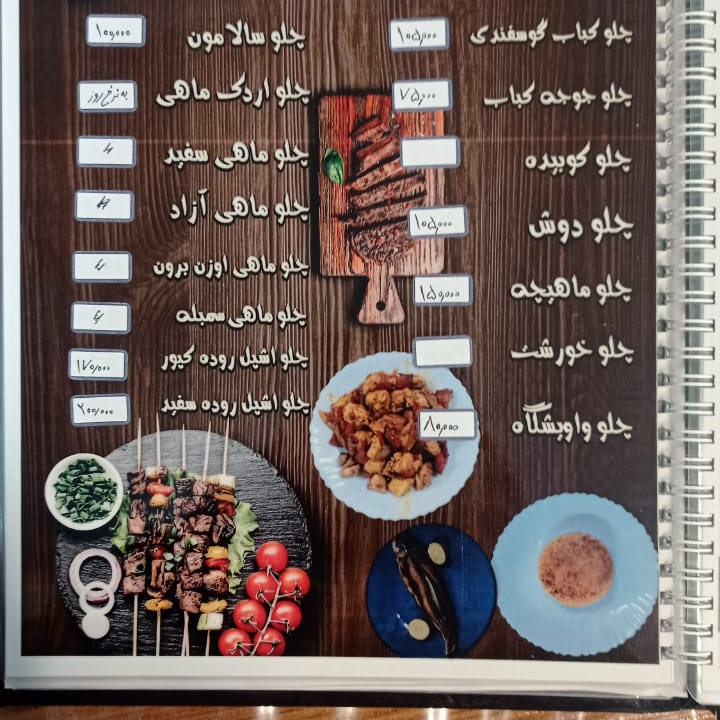 چلو کباب گوسفندی ۱۰۵,۰۰۰
چلو جوجه کباب ۷۵,۰۰۰
چلو کوبیده
چلو دوش ۱۰۵,۰۰۰
چلو ماهیچه ۱۵۰,۰۰۰
چلو خورشت
چلو واویشگاه ۸۰,۰۰۰
چلو سالامون ۱۰۰,۰۰۰
چلو اردک ماهی به نرخ روز
چلو ماهی سفید 〃
چلو ماهی آزاد 〃
چلو ماهی اوزن برون 〃
چلو ماهی سمبله 〃
چلو اشپل روده کپور ۱۷۰,۰۰۰
چلو اشپل روده سفید ۲۰۰,۰۰۰